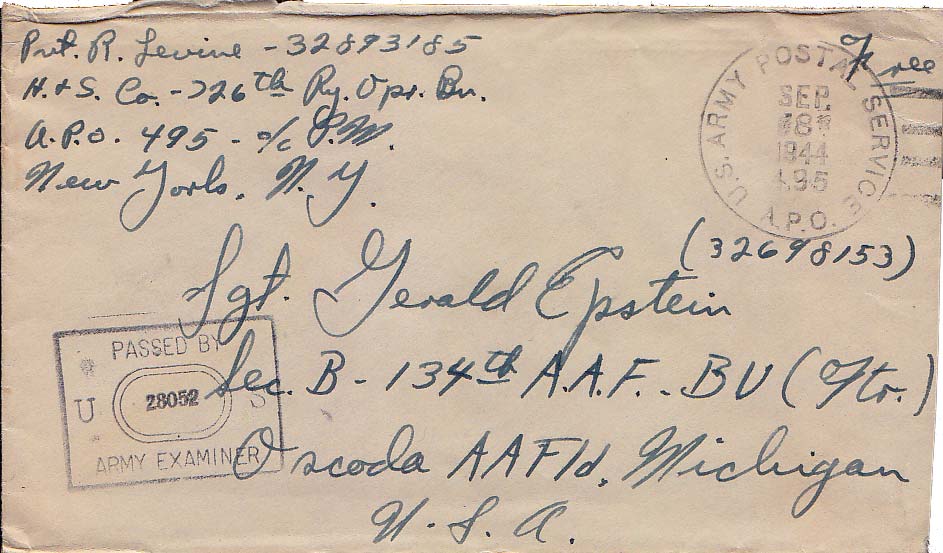 Pvt. R. Levine - 32893185
H. & S. Co. - 726th Ry. Opr. Bn.
A.P.O. 495 - c/o P.M.
New York, N.Y.
Free
U.S. ARMY POSTAL SERVICE
SEP
1944
495
A.P.O.
(32698153)
Sgt. Gerald Epstein
Sec. B - 134th A.A.F. BU (Ftr.)
Oscoda AAFld, Michigan
U. S. A.
PASSED BY
U 28052 S
ARMY EXAMINER